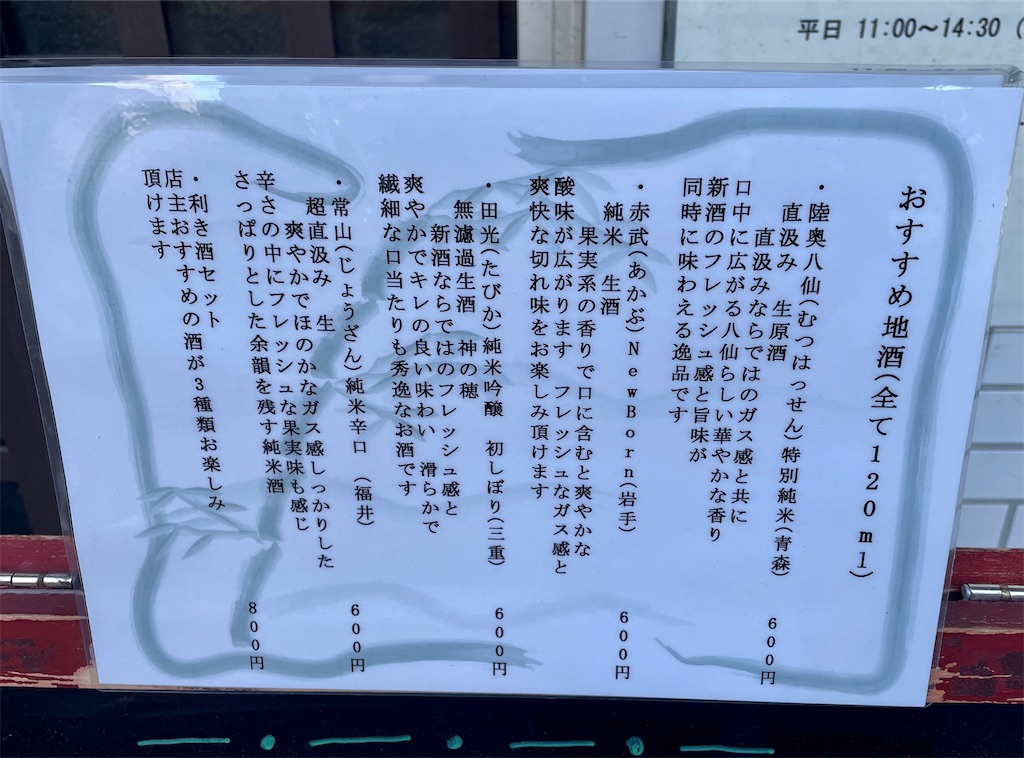 平日 11:00～14:30（
おすすめ地酒（全て１２０ｍｌ）
・陸奥八仙（むつはっせん）特別純米（青森）
直汲み　生原酒　６００円
直汲みならではのガス感と共に
口中に広がる八仙らしい華やかな香り
新酒のフレッシュ感と旨味が
同時に味わえる逸品です
・赤武（あかぶ）ＮｅｗＢｏｒｎ（岩手）
純米　生酒　６００円
果実系の香りで口に含むと爽やかな
酸味が広がります　フレッシュなガス感と
爽快な切れ味をお楽しみ頂けます
・田光（たびか）純米吟醸　初しぼり（三重）　６００円
無濾過生酒　神の穂
新酒ならではのフレッシュ感と
爽やかでキレの良い味わい　滑らかで
繊細な口当たりも秀逸なお酒です
・常山（じょうざん）純米辛口　（福井）　６００円
超直汲み　生
爽やかでほのかなガス感しっかりした
辛さの中にフレッシュな果実味も感じ
さっぱりとした余韻を残す純米酒
・利き酒セット　８００円
店主おすすめの酒が３種類お楽しみ
頂けます